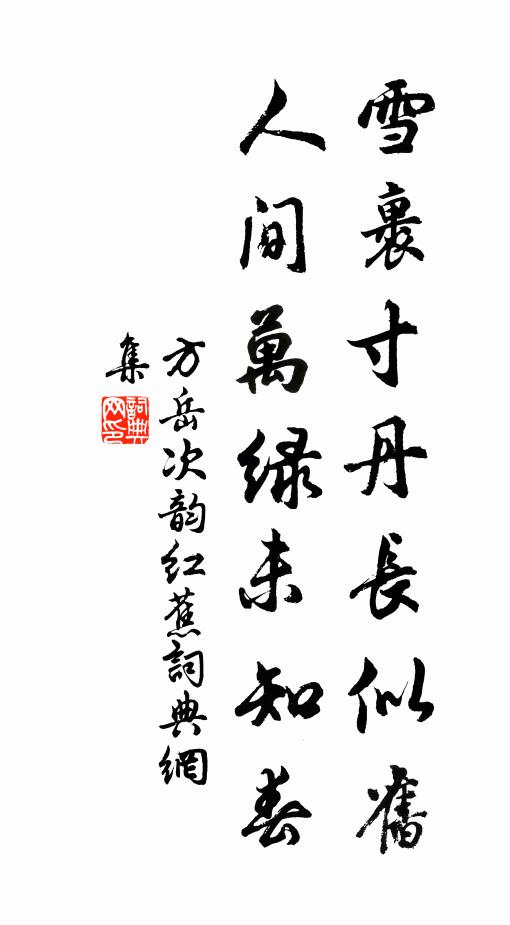 雪裹寸丹長似舊
人间萬緑未知春
方岳次韵红蕉詞典網
集
詞典网印